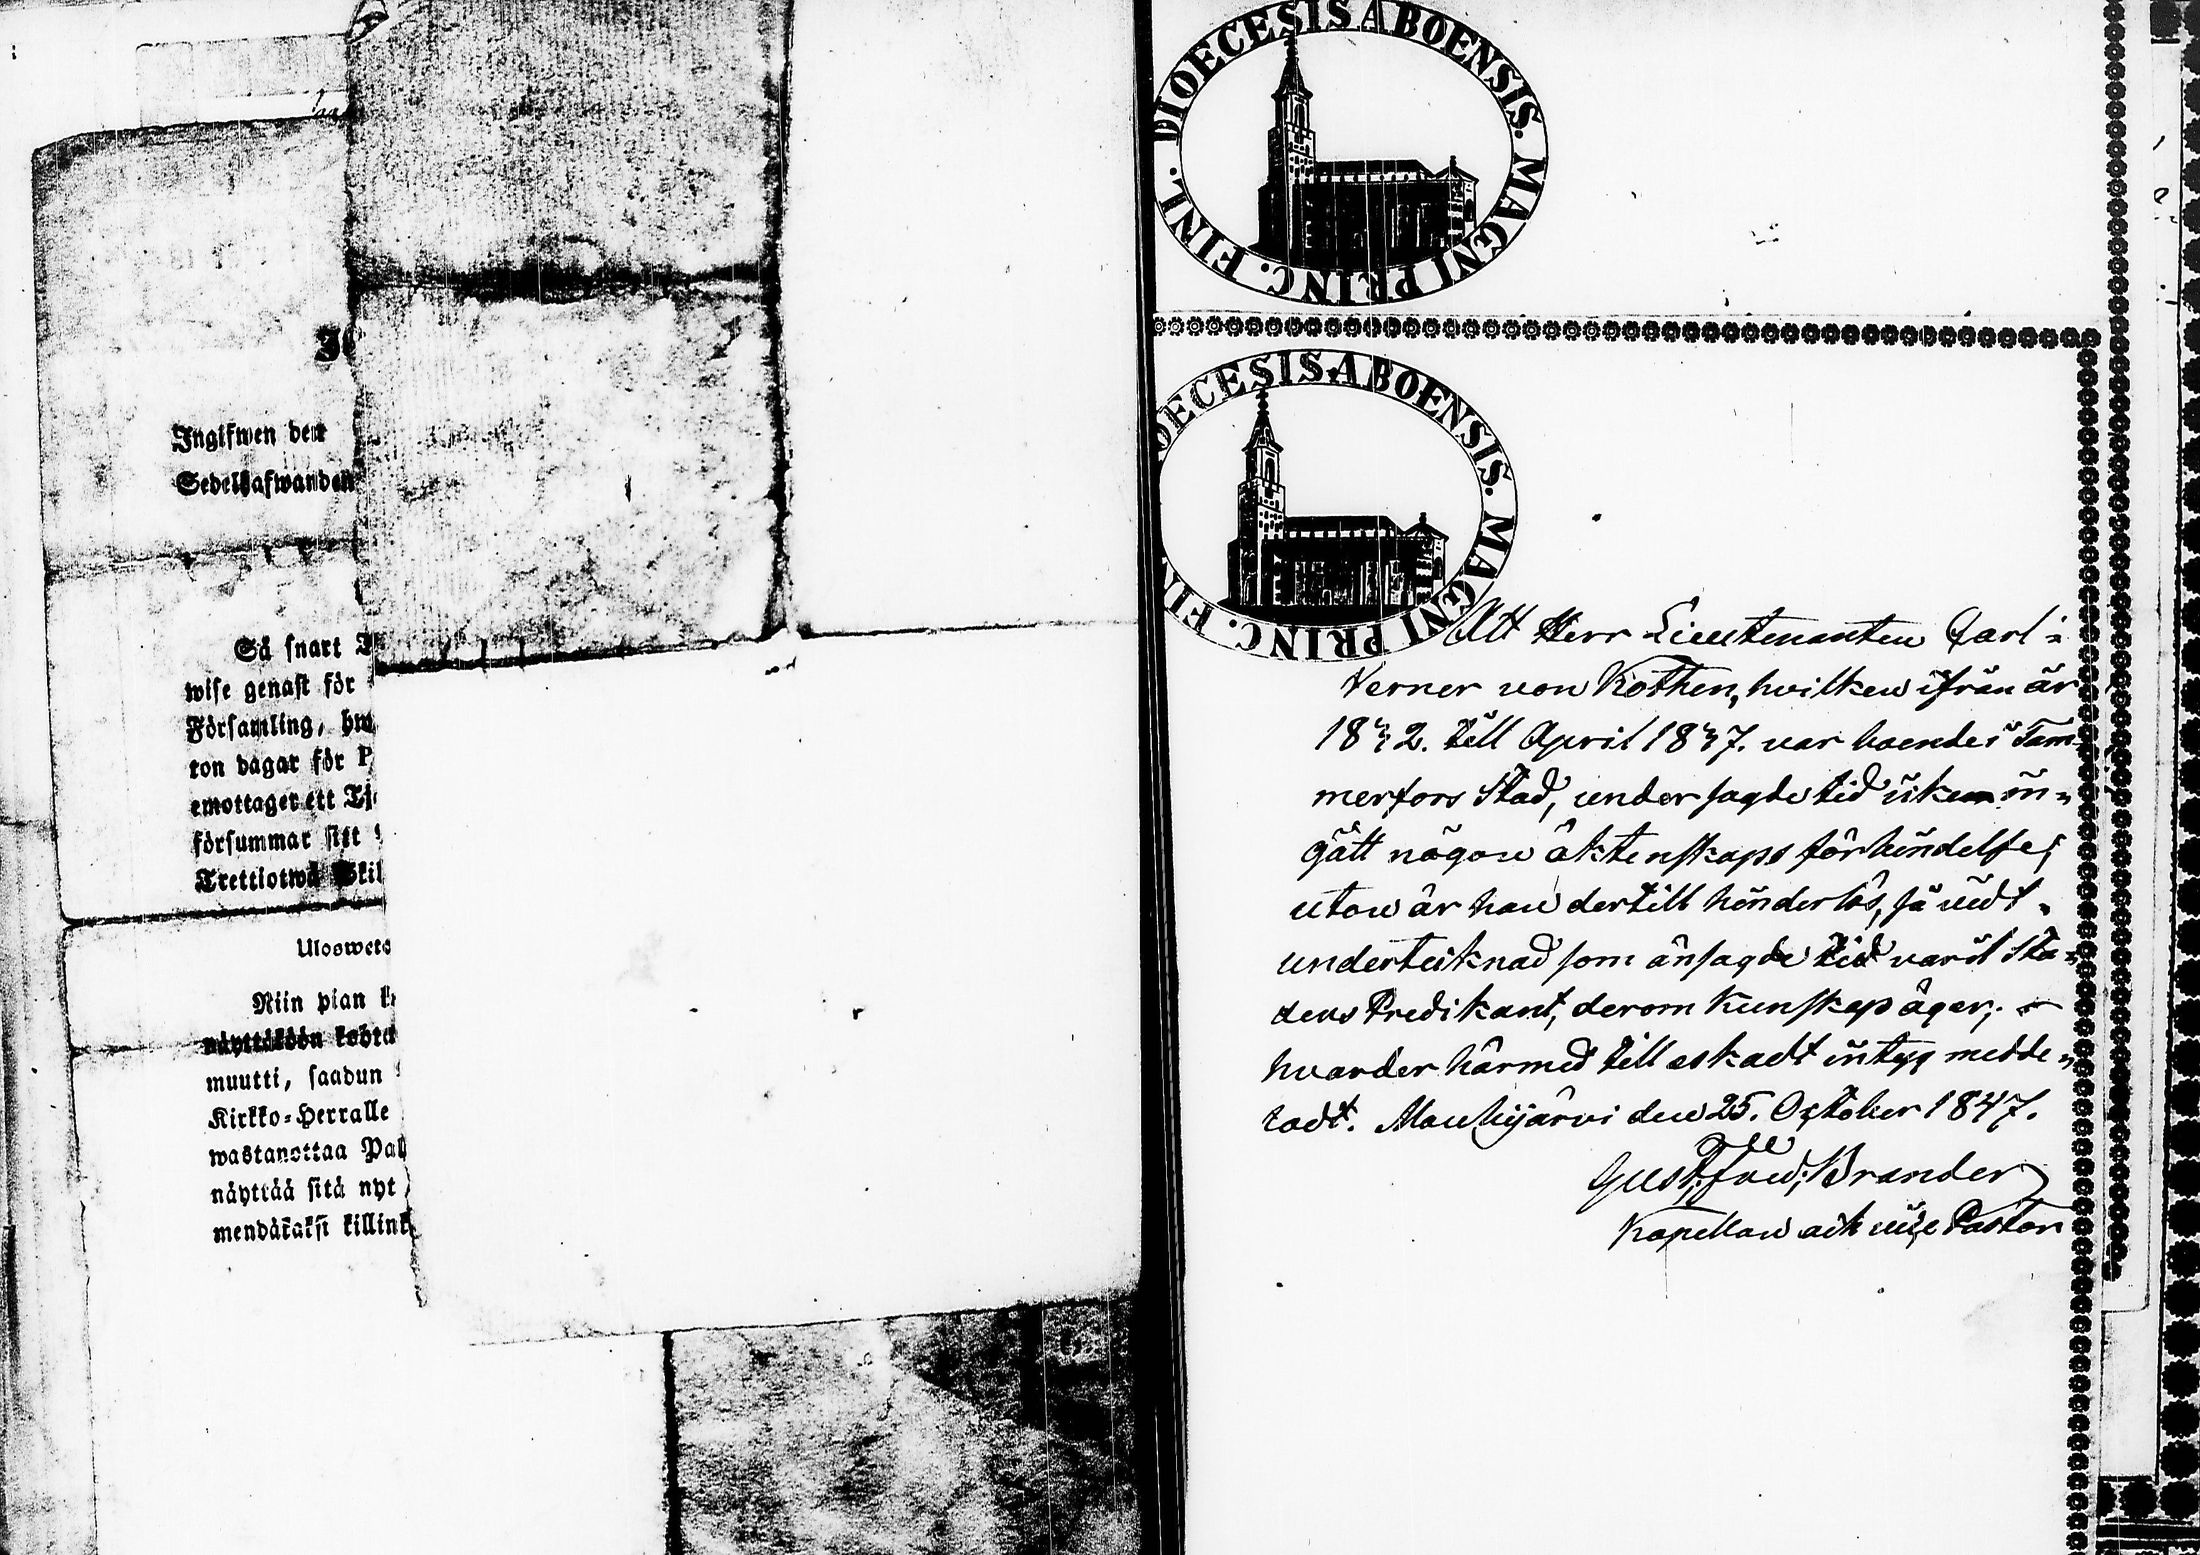 Ingifwen den
Sedelhafwanden
Så snart
wise genast för
Församling, hw
ton dagar för P
emottager ett Tj
försummar sitt
Trettiotwå Skil
Uloswets
Niin pian k
näyttäköön kohta
muutti, saadun
Kirkko-Herralle
wastanottaa Pal
näyttää sitä nyt
mendäkaksi killink
DIOECESIS ABOENSIS. MAGNI PRINC. FINL.
OECESIS ABOENSIS. MAGNI PRINC. FIN
Att Herr Lieutenanten Carl
Verner von Kothen, hvilken ifrån år
1842. till April 1847. var boende i Tam-
merfors Stad, under sagde tid icke in-
gått någon äktenskaps förbindelse;
utan är han dertill hinderlös, så vidt
undertecknad som ånsagde tid varit Sta-
dens Predikant, derom kunskap äger;
hvarder härmed till äskadt intyg medde-
ladt. Mouhijärvi den 25. October 1847.
Gust. Fred. Brander
Kapellan och vice Pastor